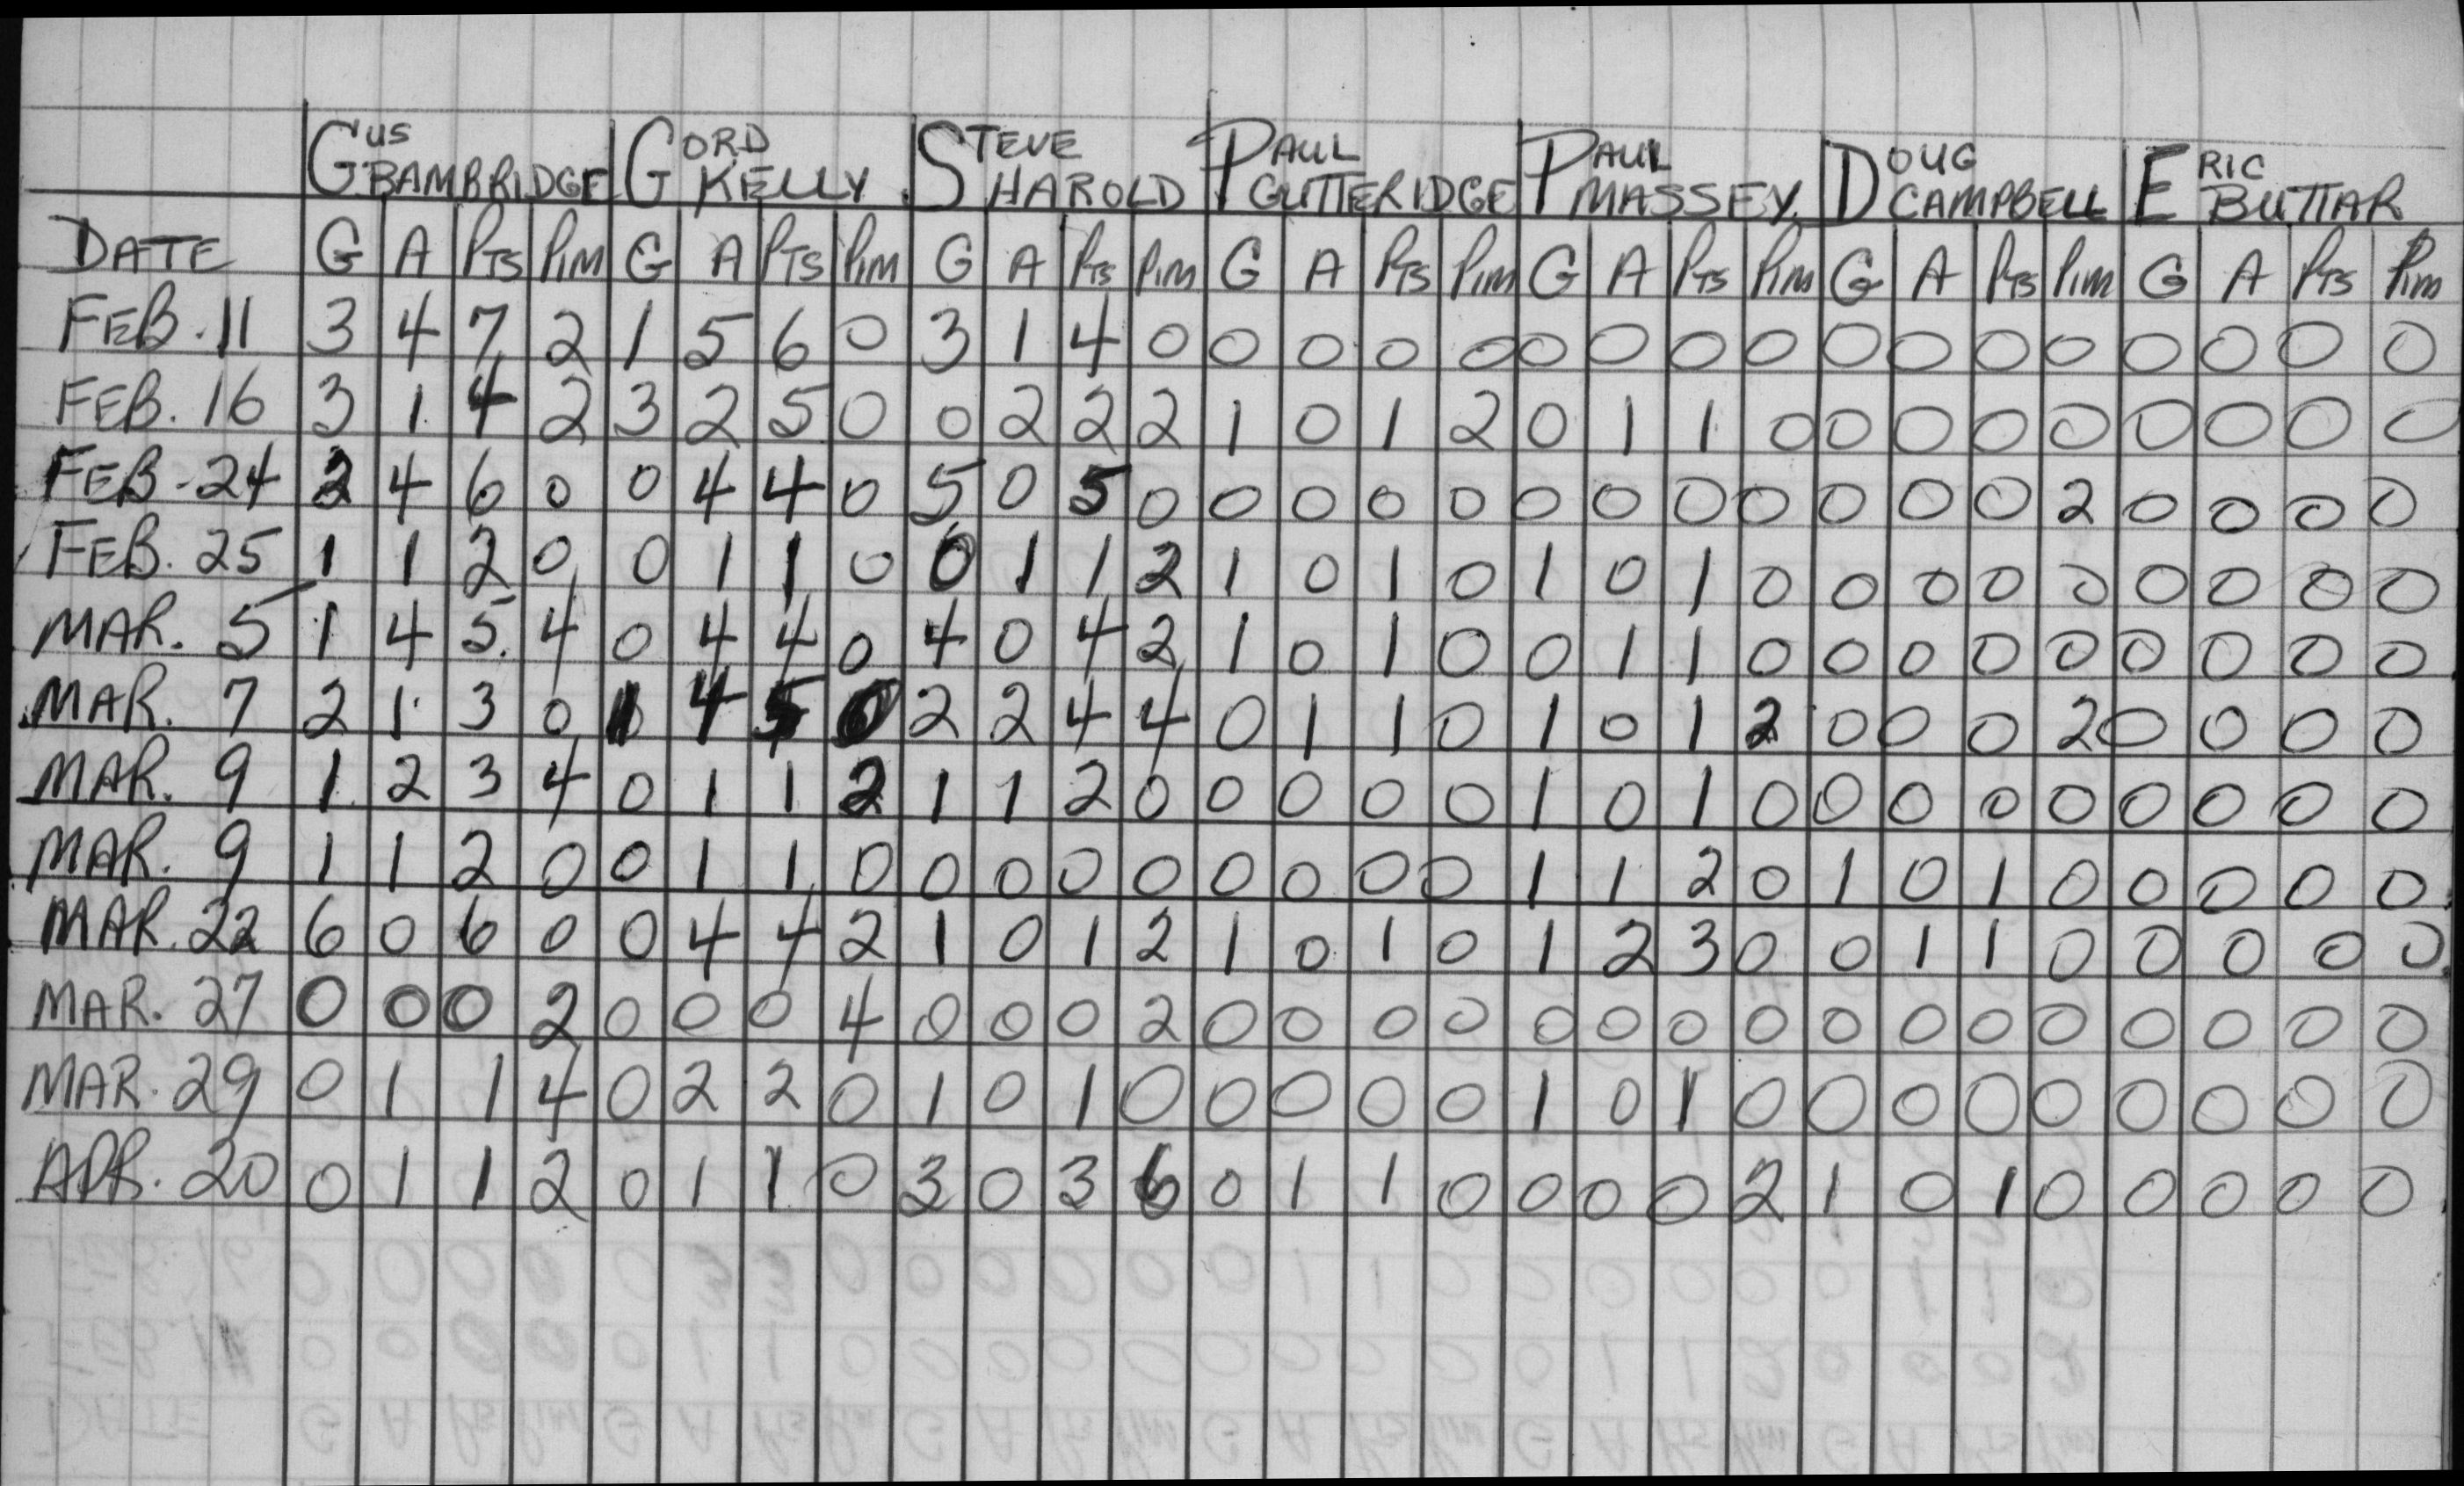 GUS BAMBRIDGE GORD KELLY STEVE HAROLD PAUL GUTTERIDGE PAUL MASSEY DOUG CAMPBELL ERIC BUTTAR
DATE G A PTS PIM G A PTS PIM G A PTS PIM G A PTS PIM G A PTS PIM G A PTS PIM G A PTS PIM
FEB. 11 3 4 7 2 1 5 6 0 3 1 4 0 0 0 0 0 0 0 0 0 0 0 0 0 0 0 0 0
FEB. 16 3 1 4 2 3 2 5 0 0 2 2 2 1 0 1 2 0 1 1 0 0 0 0 0 0 0 0 0
FEB-24 2 4 6 0 0 4 4 0 5 0 5 0 0 0 0 0 0 0 0 0 0 0 0 2 0 0 0 0
FEB. 25 1 1 2 0 0 1 1 0 0 1 1 2 1 0 1 0 1 0 1 0 0 0 0 0 0 0 0 0
MAR. 5 1 4 5 4 0 4 4 0 4 0 4 2 1 0 1 0 0 1 1 0 0 0 0 0 0 0 0 0
MAR. 7 2 1 3 0 1 4 5 0 2 2 4 4 0 1 1 0 1 0 1 2 0 0 0 2 0 0 0 0
MAR. 9 1 2 3 4 0 1 1 2 1 1 2 0 0 0 0 0 1 0 1 0 0 0 0 0 0 0 0 0
MAR. 9 1 1 2 0 0 1 1 0 0 0 0 0 0 0 0 0 1 1 2 0 1 0 1 0 0 0 0 0
MAR. 22 6 0 6 0 0 4 4 2 1 0 1 2 1 0 1 0 1 2 3 0 0 1 1 0 0 0 0 0
MAR. 27 0 0 0 2 0 0 0 4 0 0 0 2 0 0 0 0 0 0 0 0 0 0 0 0 0 0 0 0
MAR. 29 0 1 1 4 0 2 2 0 1 0 1 0 0 0 0 0 1 0 1 0 0 0 0 0 0 0 0 0
APR. 20 0 1 1 2 0 1 1 0 3 0 3 6 0 1 1 0 0 0 0 2 1 0 1 0 0 0 0 0